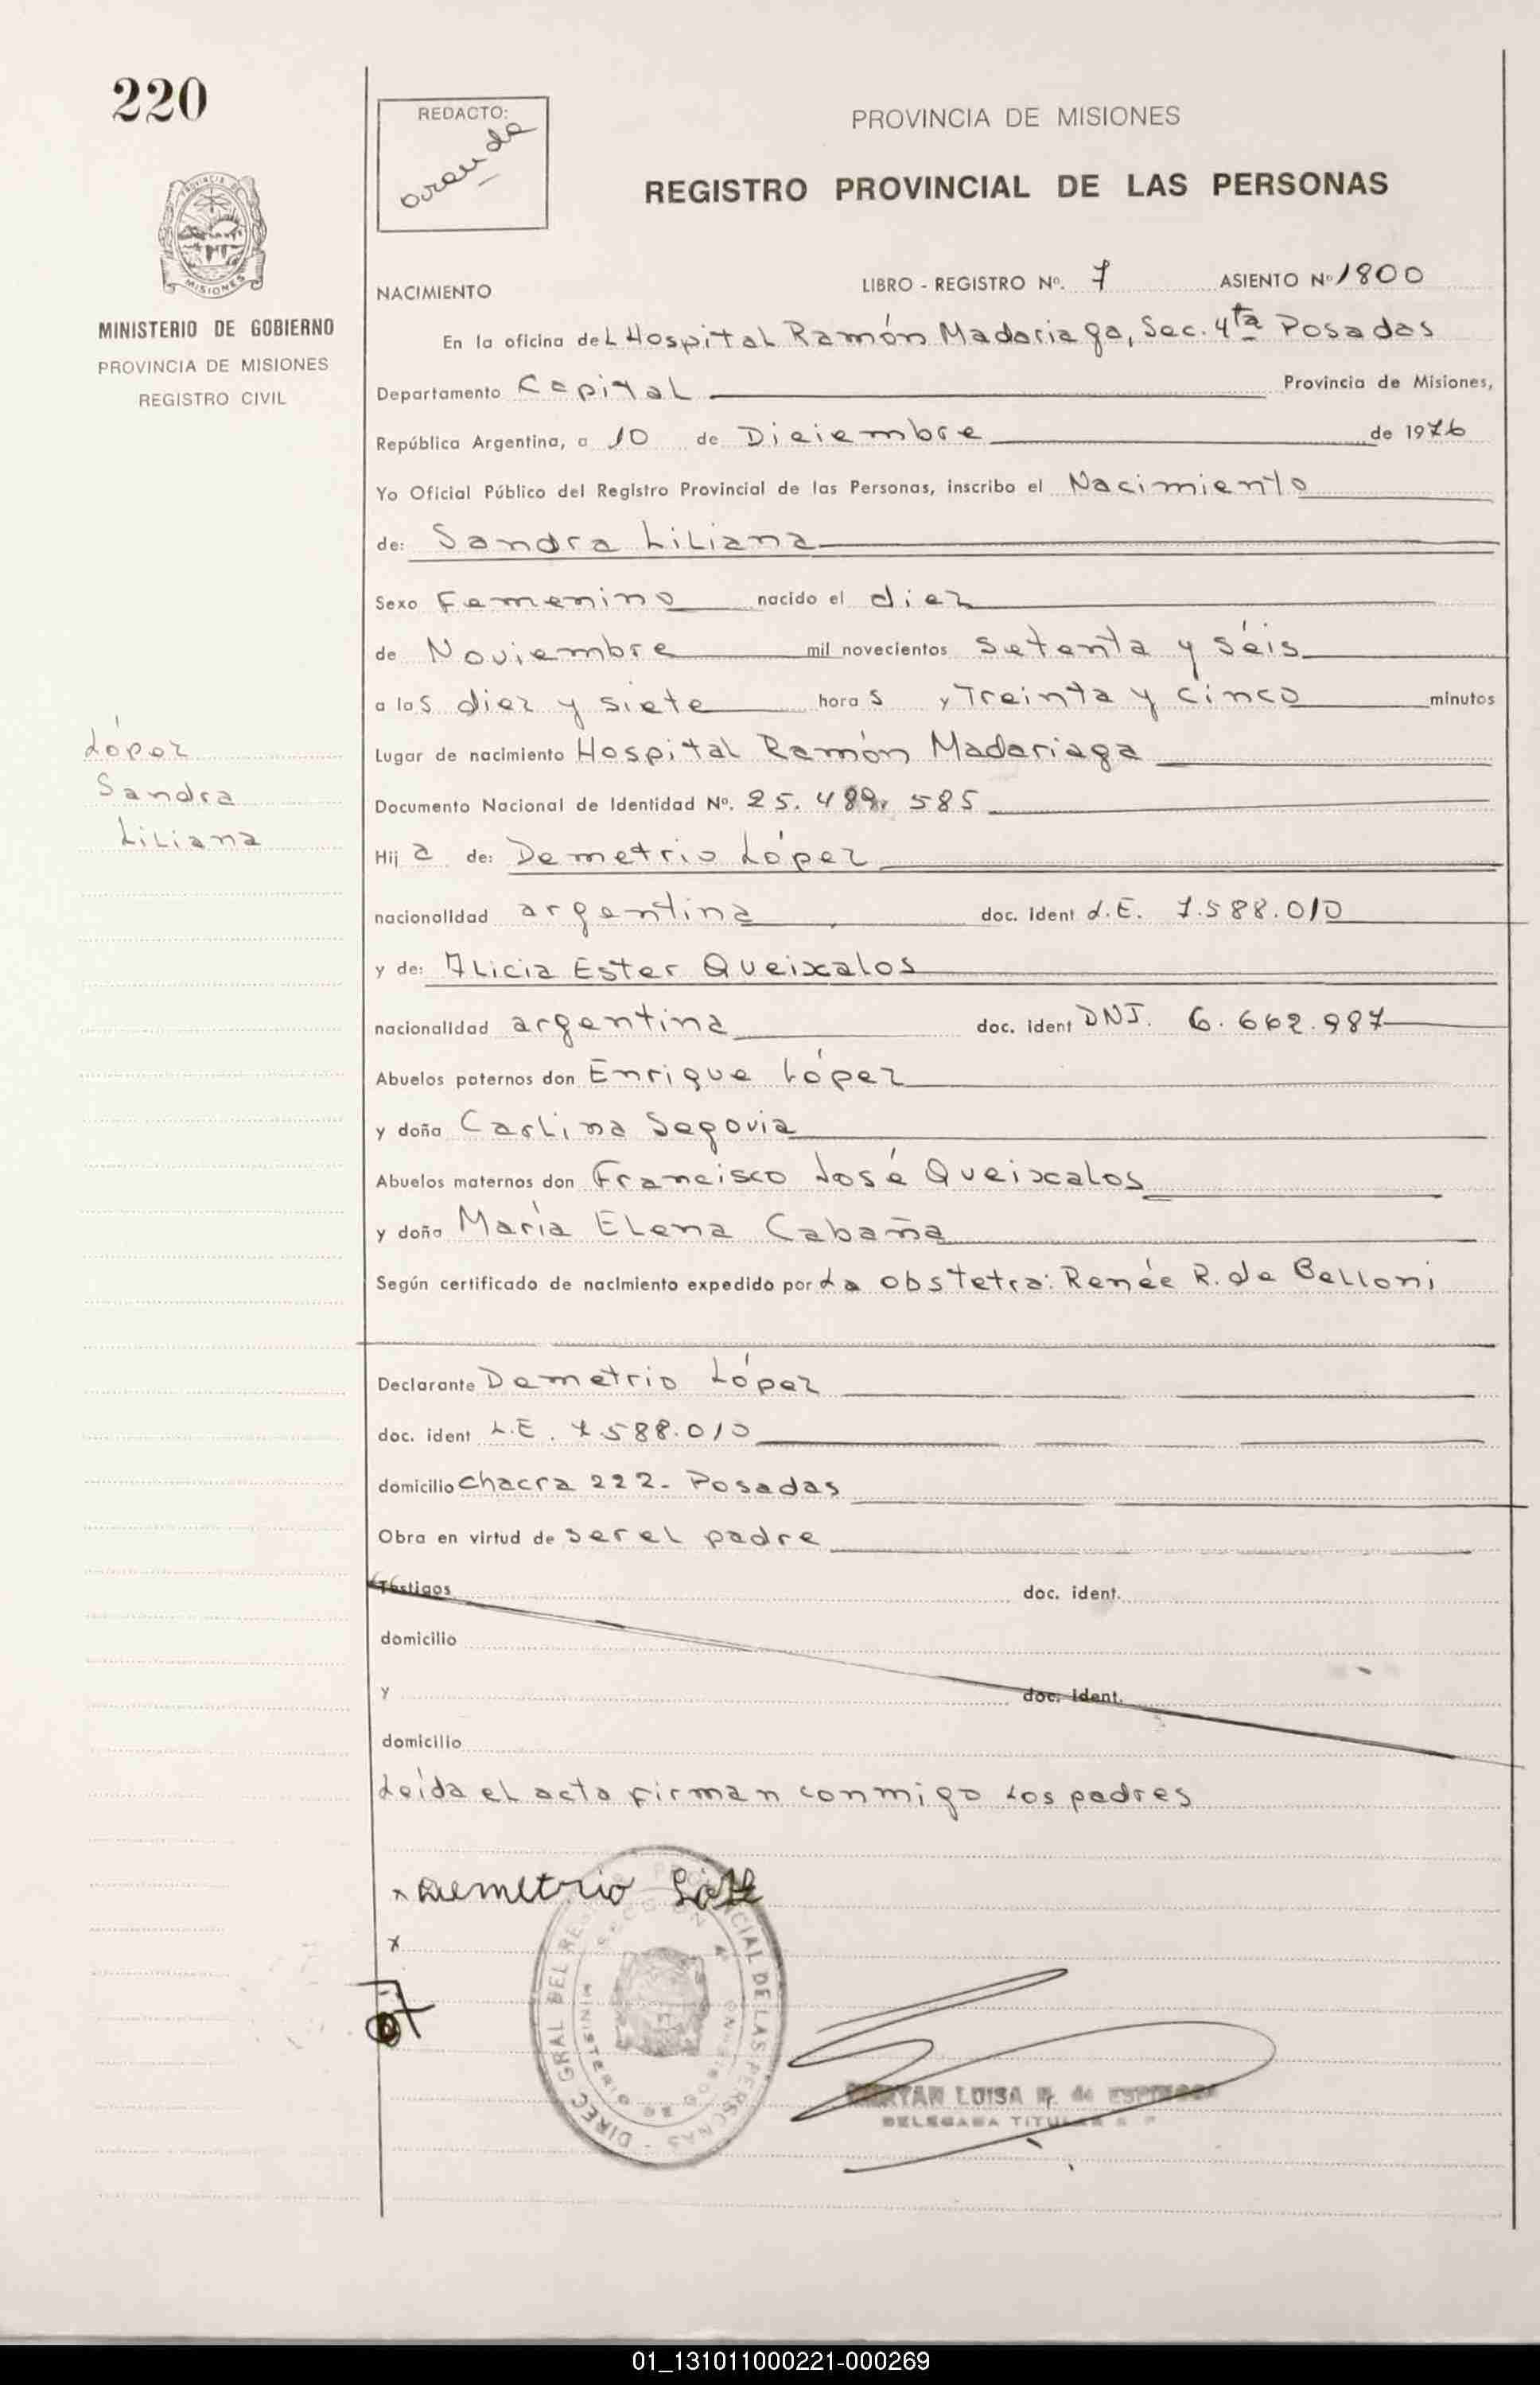 220
REDACTO:
PROVINCIA DE MISIONES
REGISTRO PROVINCIAL DE LAS PERSONAS
MISIONES
MINISTERIO DE GOBIERNO
PROVINCIA DE MISIONES
REGISTRO CIVIL
NACIMIENTO LIBRO - REGISTRO Nº. 7 ASIENTO Nº 1800
En la oficina del Hospital Ramón Madariaga, Sec. 4ta Posadas
Departamento Capital Provincia de Misiones,
República Argentina, a 10 de Diciembre de 1976
Yo Oficial Público del Registro Provincial de las Personas, inscribo el Nacimiento
de: Sandra Liliana
Sexo Femenino nacido el diez
de Noviembre mil novecientos setenta y séis
a las diez y siete horas y Treinta y cinco minutos
López
Sandra
Liliana
Lugar de nacimiento Hospital Ramón Madariaga
Documento Nacional de Identidad Nº. 25. 585
Hija de: Demetrio López
nacionalidad argentina doc. ident L.E. 7.588.010
y de: Alicia Ester Queixalos
nacionalidad argentina doc. ident DNI. 6.662.987
Abuelos paternos don Enrique López
y doña Carlina Segovia
Abuelos maternos don Francisco José Queixalos
y doña María Elena Cabaña
Según certificado de nacimiento expedido por La obstetra: Renée R. de Belloni
Declarante Demetrio López
doc. ident L.E. 7.588.010
domicilio chacra 222- Posadas
Obra en virtud de ser el padre
Testigos doc. ident.
domicilio
y doc. ident.
domicilio
Leída el acta firman conmigo los padres
x Demetrio
x
DIREC GRAL DEL REG PROVINCIAL DE LAS PERSONAS
SECCION 4ª
MINISTERIO DE GOBIERNO
LUISA R. de ESPINOSA
DELEGADA TITULAR
01_131011000221-000269